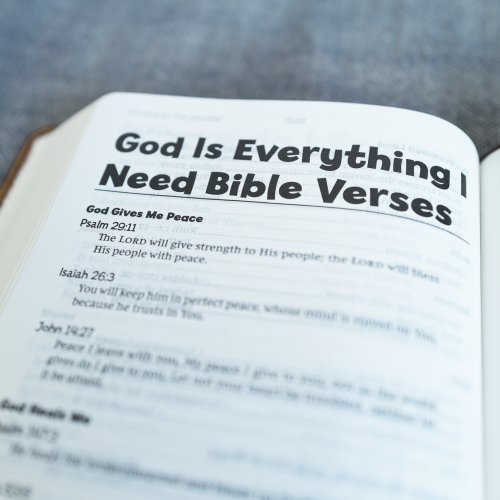 God Is Everything I
Need Bible Verses
God Gives Me Peace
Psalm 29:11
The LORD will give strength to His people; the LORD will bless
His people with peace.
Isaiah 26:3
You will keep him in perfect peace, whose mind is stayed on You,
because he trusts in You.
John 14:27
Peace I leave with you, My peace I give to you; not as the world
gives do I give to you. Let not your heart be troubled, neither
it be afraid.
God